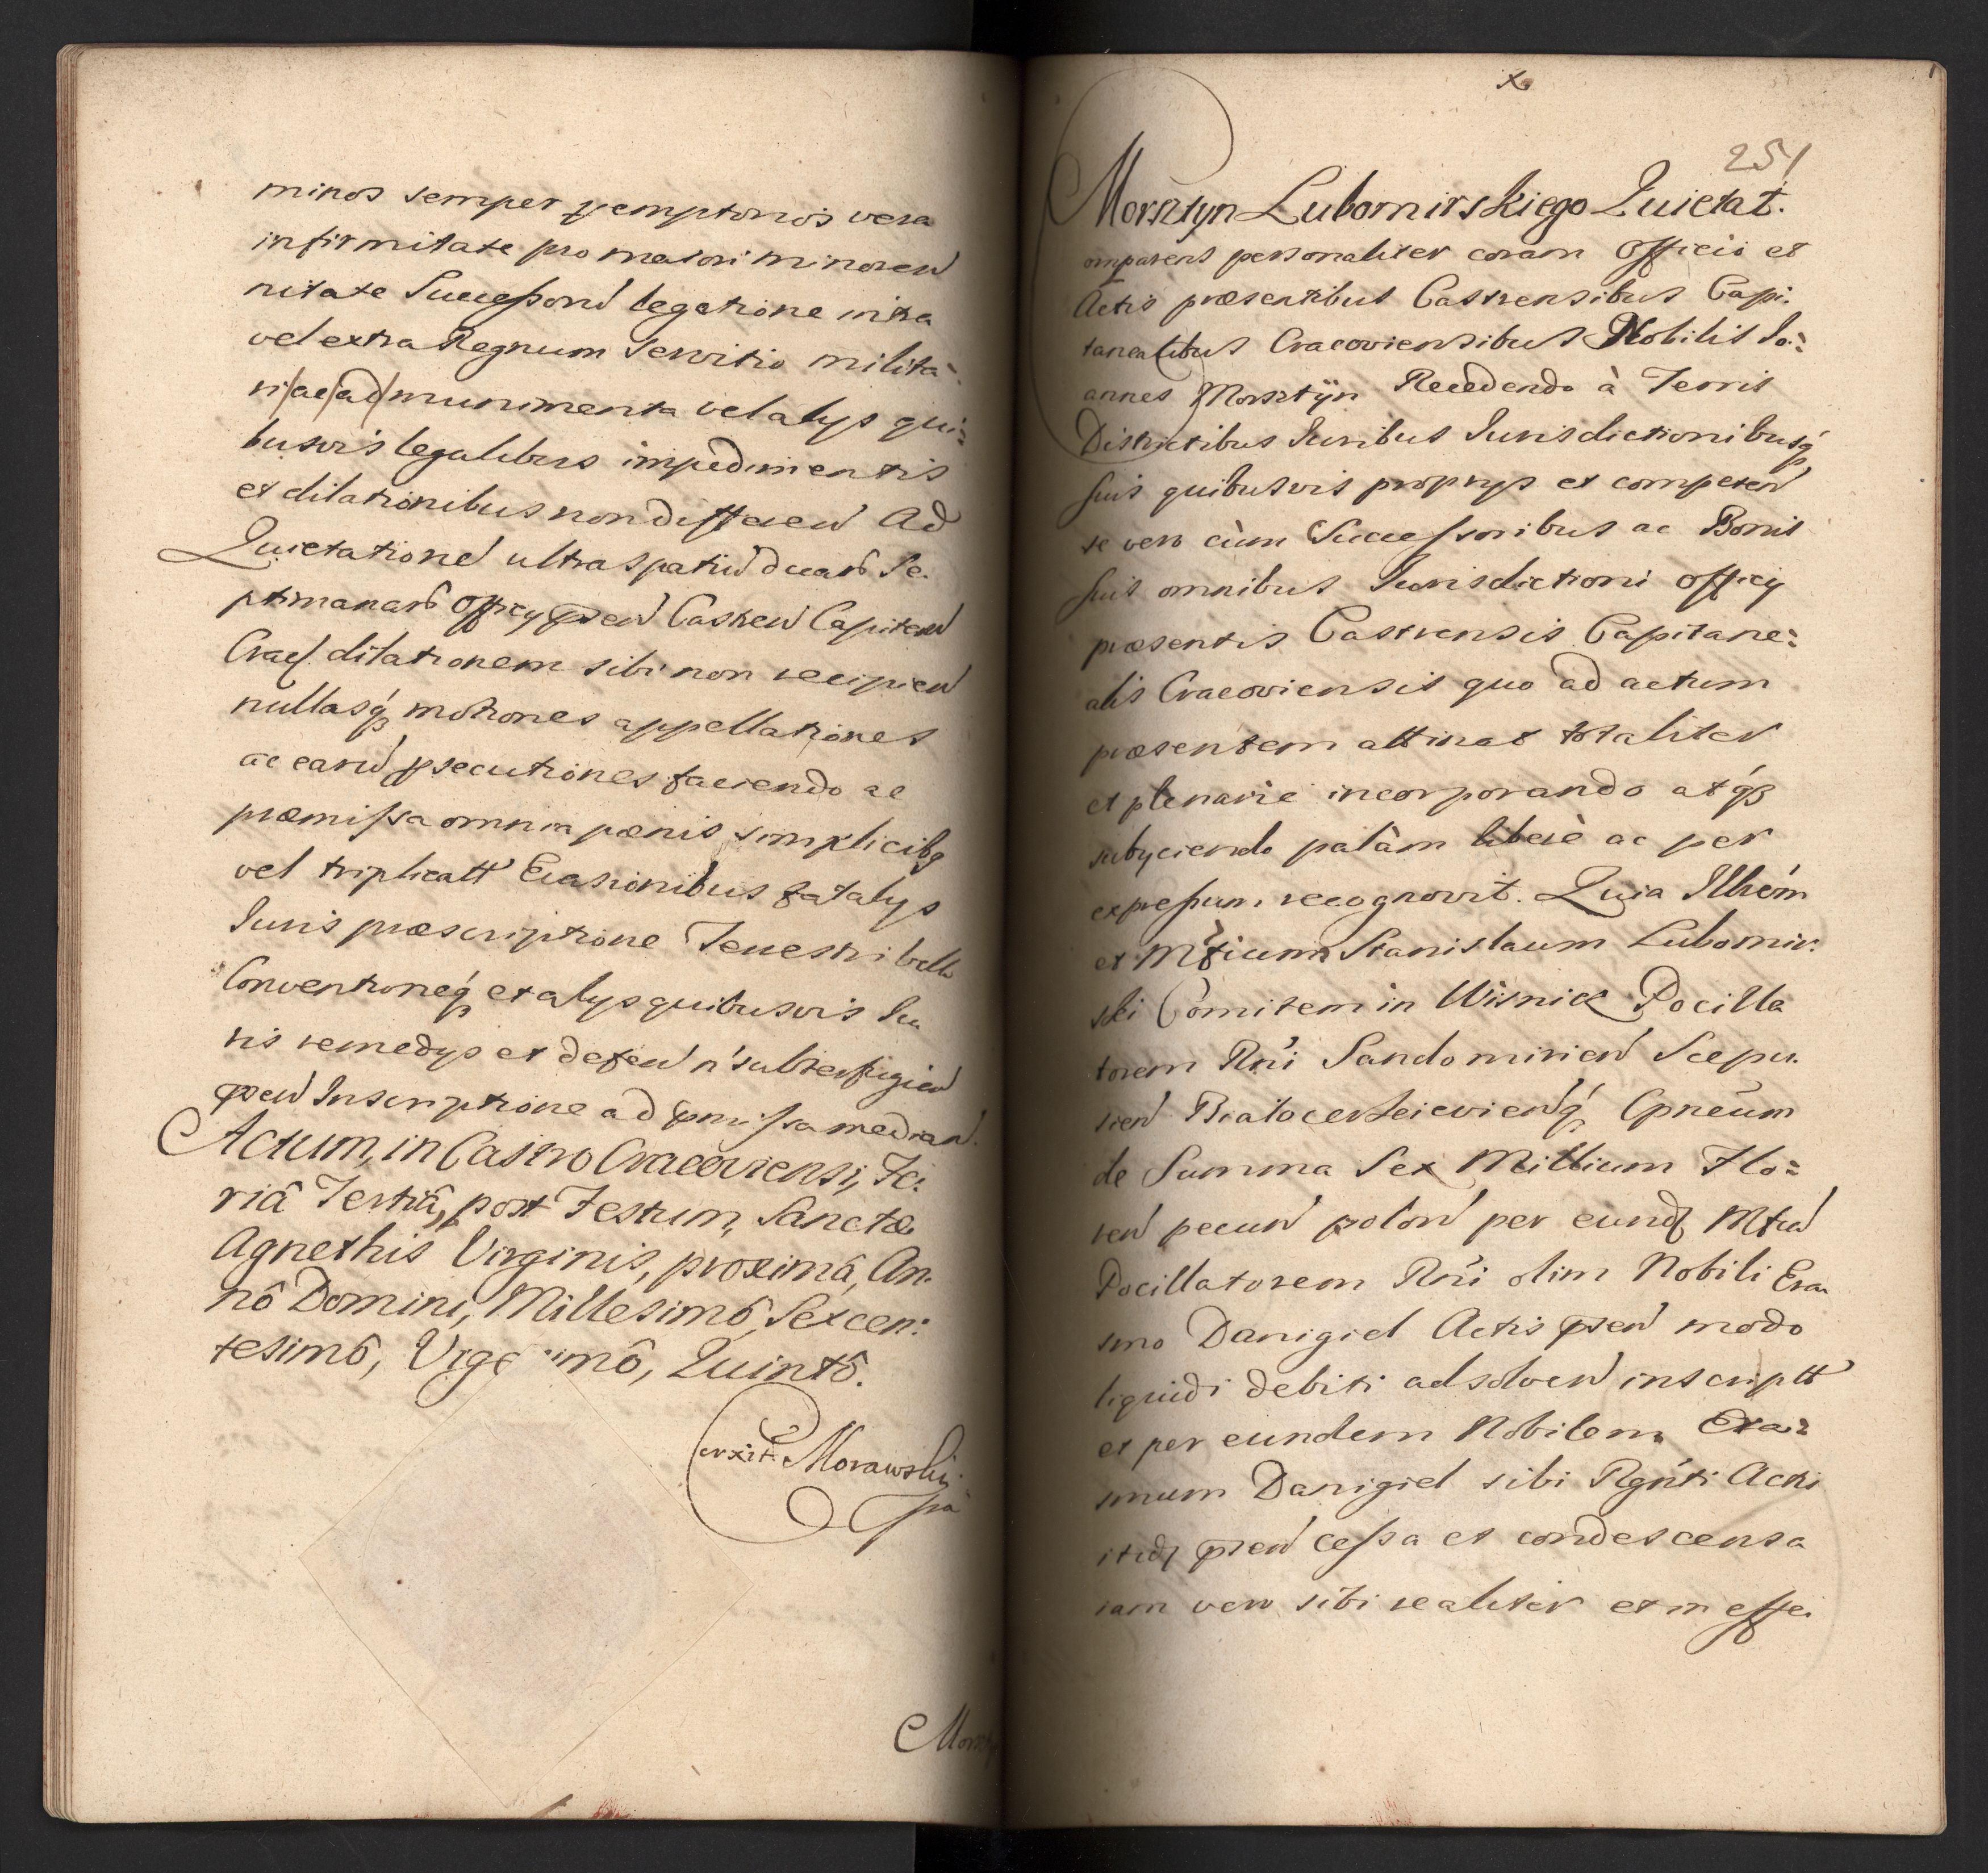 minos semper peremptorios vera
infirmitate pro maiori minoren
nitate Successorū legatione intra
vel extra Regnum servitio milita-
ri/ac/ad/munimenta vel alijs qui=
busvis legalibus impedimentis
et dilationibus non differen̄ Ad
Quietationē ultra spatiū duarū Se.
ptimanarū Officij pr̄sen̄ Castren̄ Capiten̄
Crac̄. dilationem sibi non recipien̄
nullasq́ motiones appellationes
ac earū psecutiones faciendo ac
præmissa omnia pænis simplicibq
vel triplicatt̄ Evasionibus fatalijs
Iuris præscriptione Terrestri bello
Conventioneq́ et alijs quibusvis Iu
ris remedijs et defen̄ n̄ subterfugien̄
pr̄sen̄ Inscriptione ad pr̄missa median̄.
Actum, in Castro Cracoviensi, Fe:
riâ Tertiâ, post Festum, Sanctæ
Agnethis Virginis, proximâ, An.
nô Domini, Millesimô, Sexcen:
tesimô, Vige imô, Quintô.
Corrxit Morawski
mpa
Morszt
x
251
Morsztyn Lubomirskiego Quietat.
omparens personaliter coram Officio et
Actis præsentibus Castrensibus Capi.
tanealibus Cracoviensibus Nobilis Io=
annes Morsztÿn Recedendo à Terris
Districtibus Iuribus Iurisdictionibusq́
suis quibusvis proprijs et competen̄
se vero cùm Successoribus ac Bonis
suis omnibus Iurisdictioni officij
præsentis Castrensis Capitane=
alis Cracoviensis quo ad actum
præsentem attinat totaliter
et plenarie incorporando atq́3
subijciendo palàm liberè ac per
expressum recognovit. Quia Illr̄ém
et Mg̃ficum Stanislaum Lubomir:
ski Comitem in Wisnicz Pocilla
torem Rńi Sandomirien̄ Scepu.
sien̄ Białocerkieievien̄q́ Cpnēum
de Summa Sex Millium Flo=
ren̄ pecun̄ polon̄ per eund̄ Mfcū
Pocillatorem Rńi olim Nobili Era
smo Danigiel Actis pr̄sen̄ modo
liquidi debiti ad solven̄ inscriptt̄
et per eundem Nobilem Era=
smum Danigiel sibi Rgńti Actis
itid̄ pr̄sen̄ cessa et condescensa
iam vero sibi realiter et in effe.